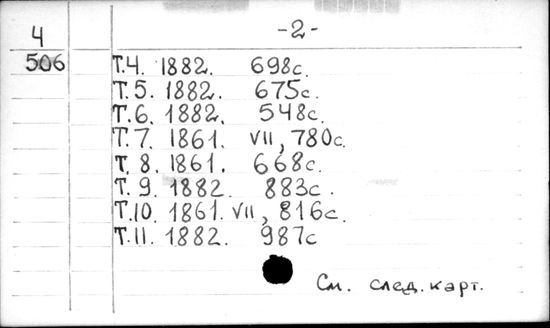 -2-
4
506
Т.4. 1882. 698с.
Т.5. 1882. 675с.
Т.6. 1882. 548с.
Т.7. 1861. VII, 780с.
Т. 8. 1861. 668с.
Т. 9. 1882. 883с.
Т.10. 1861. VII, 816с.
Т.11. 1882. 987с
См. след. карт.